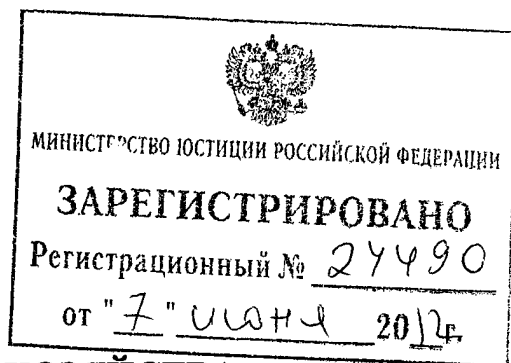 МИНИСТЕРСТВО ЮСТИЦИИ РОССИЙСКОЙ ФЕДЕРАЦИИ
ЗАРЕГИСТРИРОВАНО
Регистрационный № 24490
от "7" июня 2012г.